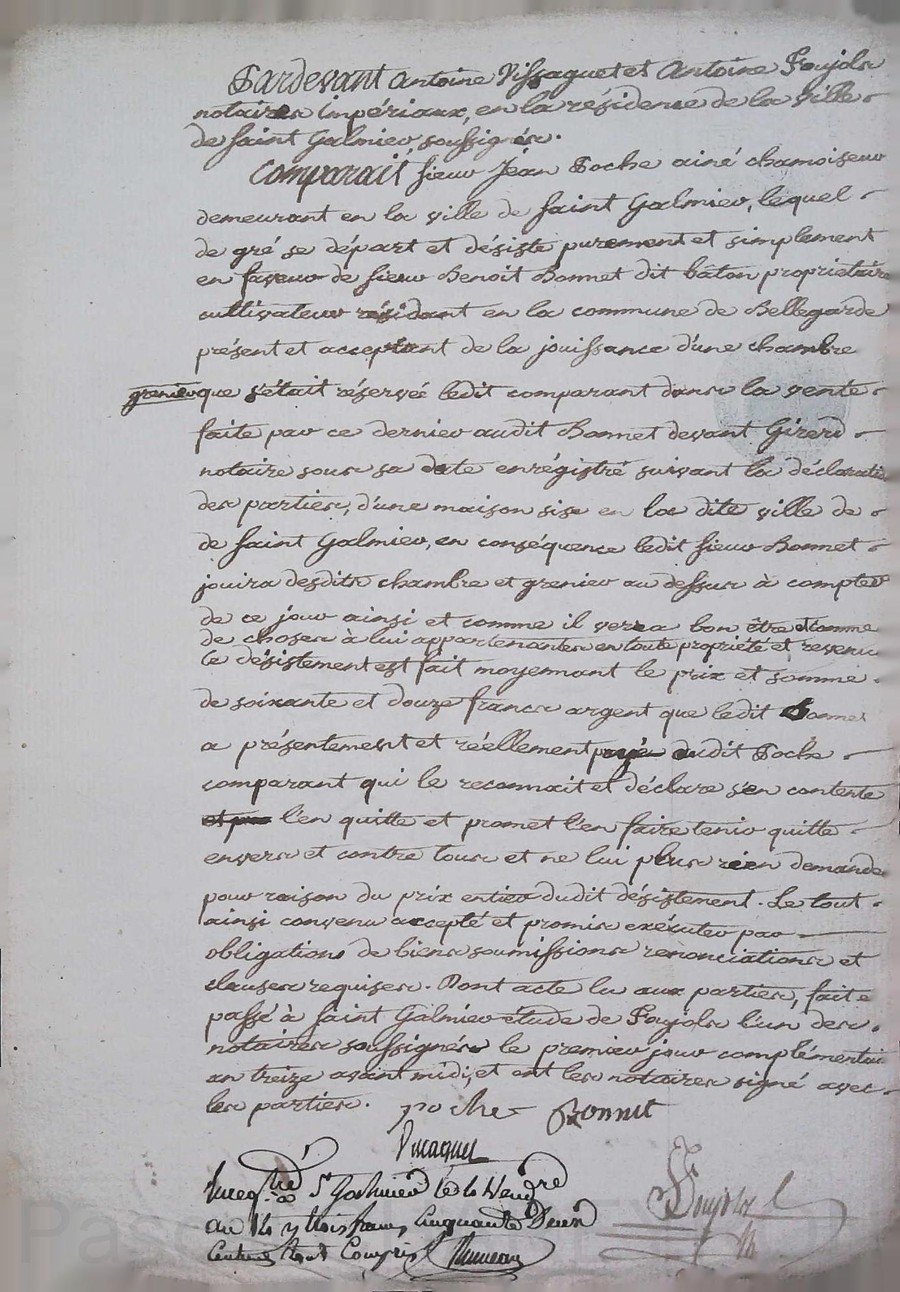 Pardevant antoine Vissaguet et Antoine Poujols
notaires impériaux, en la résidence de la ville
de saint Galmier soussignés.
Comparait sieur Jean Poche ainé chamoiseur
demeurant en la ville de saint Galmier, lequel
de gré se départ et désiste purement et simplement
en faveur de sieur Benoit Bonnet dit bâton propriétaire
cultivateur résidant en la commune de Bellegarde
présent et acceptant de la jouissance d'une chambre
grenier que s'était réservée ledit comparant dans la vente
faite par ce dernier audit Bonnet devant Girerd
notaire sous sa date enrégistré suivant la déclaratio
des parties, d'une maison sise en la dite ville de
de saint Galmier, en conséquence ledit sieur Bonnet
jouira desdits chambre et grenier au dessus à compter
de ce jour ainsi et comme il verra bon être et comme
de choses à lui appartenantes en toute propriété et revenu
ce désistement est fait moyennant le prix et somme
de soixante et douze francs argent que ledit Bonnet
a présentement et réellement payé audit Poche
comparant qui le reconnait et déclare s'en contente
l'en quitte et promet l'en faire tenir quitte
envers et contre tous et ne lui plus rien demande
pour raison du prix entier dudit désistement. Le tout
ainsi convenu accepté et promis exécuter par
obligations de biens soumissions renonciations et
clauses requises. Dont acte lu aux parties, fait e
passé à saint Galmier étude de Poujols l'un des
notaires soussignés le premier jour complémentai
an treize avant midi, et ont les notaires signé avec
les parties. poche Bonnet
Vissaguet
Enregtré à St Galmier le Vendre
an 14 r trois francs cinquante deux Poujols
centimes tout compris